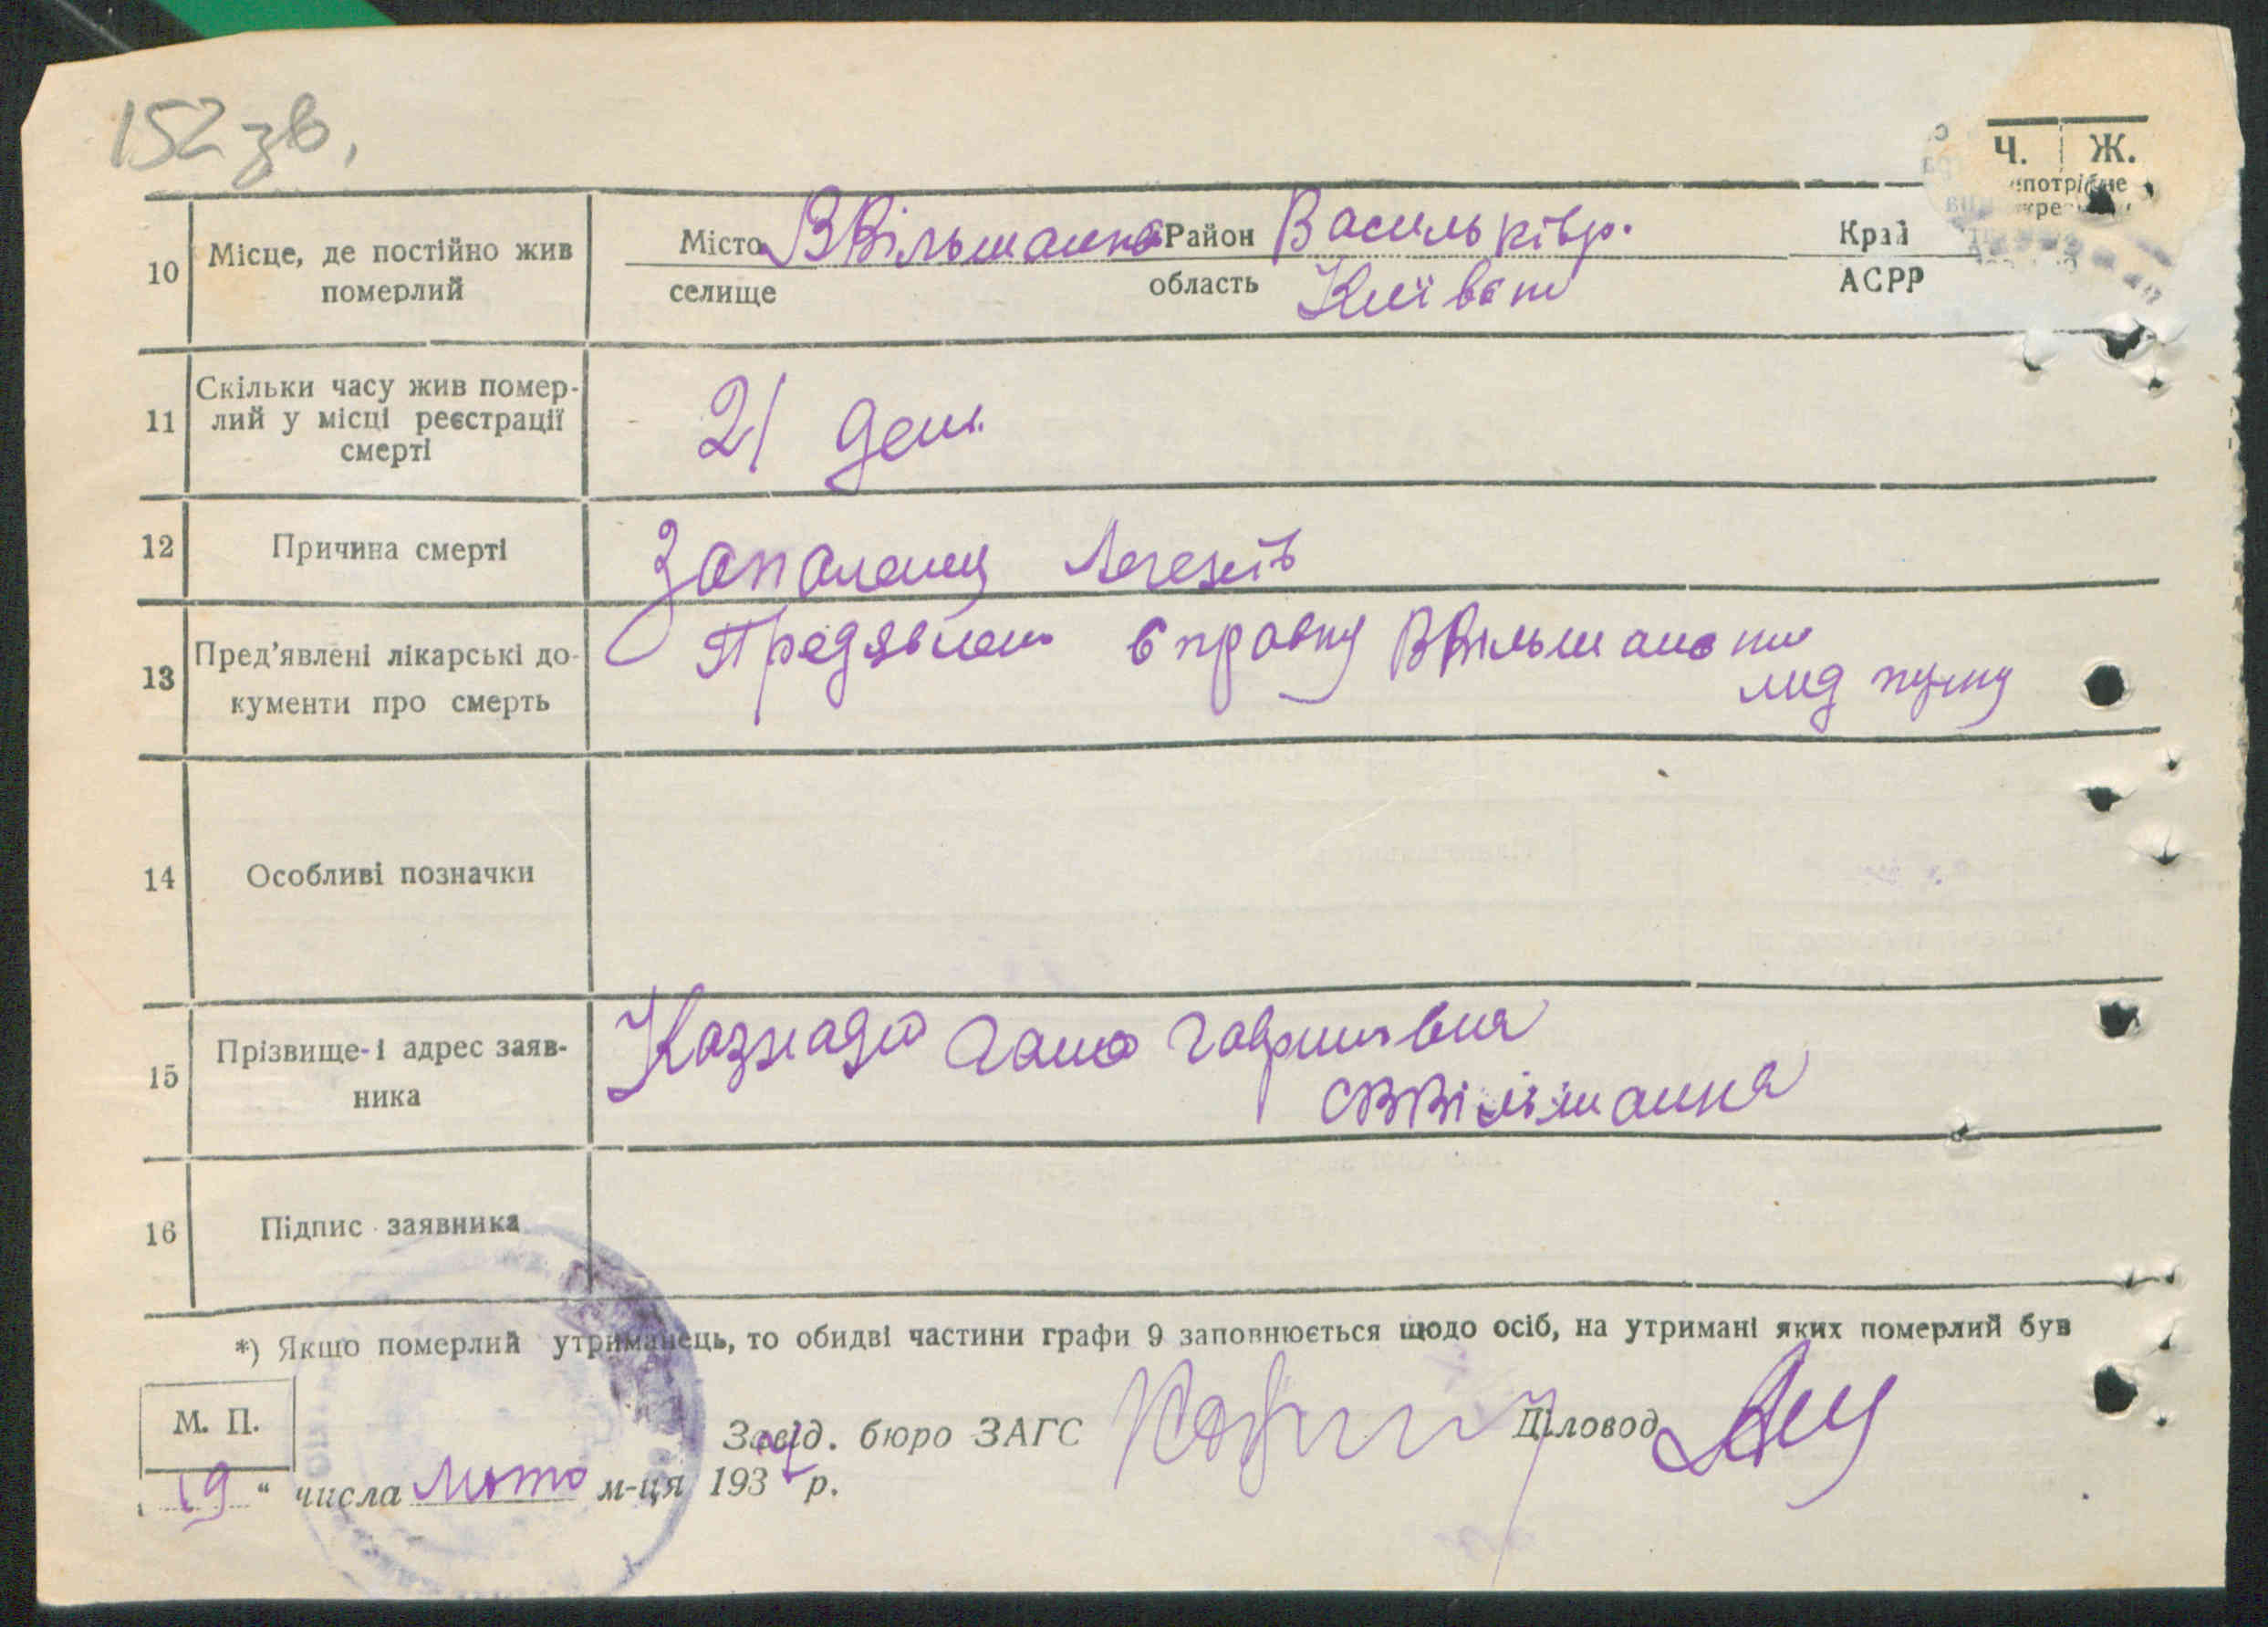 152 зв.
Ч. Ж.
10 Місце, де постійно жив померлий
Місто ВВільшанка Район Васильківр. Край
селище область Київська АСРР
11 Скільки часу жив помер-
лий у місці реєстрації
смерті
21 ден.
12 Причина смерті
Запаленя легенів
13 Пред'явлені лікарські до-
кументи про смерть
Предявлен справку ВВільшансть
мед пунку
14 Особливі позначки
15 Прізвище і адрес заяв-
ника
Казнадій Гана Гаврилівна
с ВВільшанка
16 Підпис заявника
*) Якщо померлий утриманець, то обидві частини графи 9 заповнюється щодо осіб, на утримані яких померлий був
М. П.
Завід. бюро ЗАГС Діловод
19 " числа люто м-ця 1937 р.